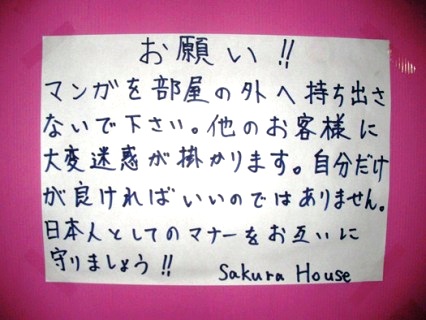 お願い!!
マンガを部屋の外へ持ち出さ
ないで下さい。他のお客様に
大変迷惑が掛かります。自分だけ
が良ければいいのではありません。
日本人としてのマナーをお互いに
守りましょう!!
Sakura House